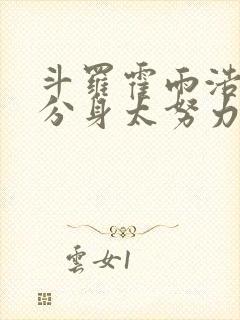 斗羅霍雨浩
分身太努力
雲女1